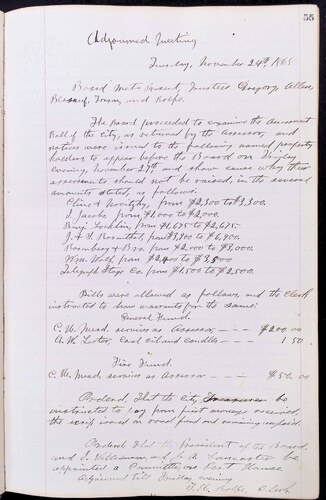 55
Adjourned Meeting
Tuesday, November 24th 1868
Board met. Present, Trustees Gregory, Allen,
and Rolfe.
The Board proceeded to examine the Assessment
Roll of the City, as returned by the Assessor, and
notices were issued to the following named property
holders to appear before the Board on Friday
evening, November 27th and show cause why their
assessments should not be raised, in the several
amounts stated, as follows:
Cline & from $2,300 to $3,300.
I. Jacobs, from $1,000 to $2,000.
Benj. Locklin, from $1,675 to $2,675.
J. & H. Rosenthal, from $3,700 to $6,700.
Rosenberg & Bro. from $2,000 to $3,000.
Wm. Wolf, from to $3,500
Telegraph Stage Co. from $1,500 to $2,500.
Bills were allowed as follows, and the Clerk
instructed to draw warrants for the same:
General Fund.
C. W. Mead, services as Assessor — — $200.00
A. H. coal oil and candles — — 1 50
Fire Fund.
C. W. Mead, services as Assessor — — $50.00
Ordered that the City Treasurer be
instructed to pay from first moneys received,
the scrip issued on road fund and remaining unpaid.
Ordered that the President of the Board
and J. Williamson and Lancaster be
appointed a Committee on Pest House.
Adjourned till Friday evening
Rolfe, Clerk